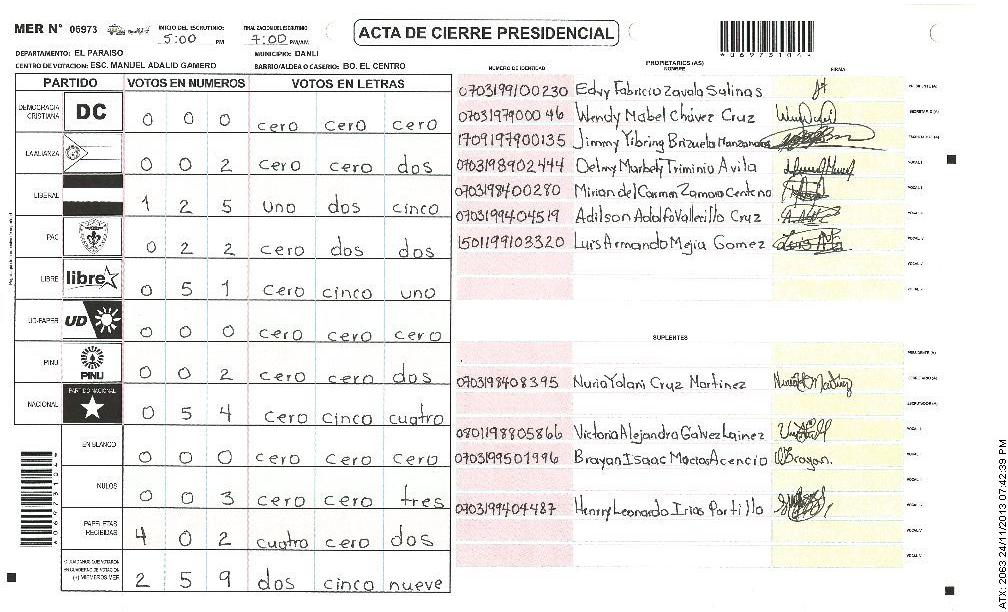 MER N° 06973 INICIO DEL ESCRUTINIO 5:00 PM FINALIZACION DEL ESCRUTINIO 7:00 PM/AM ACTA DE CIERRE PRESIDENCIAL
DEPARTAMENTO: EL PARAISO MUNICIPIO: DANLI
CENTRO DE VOTACION: ESC. MANUEL ADALID GAMERO BARRIO/ALDEA O CASERIO: BO. EL CENTRO
PARTIDO VOTOS EN NUMEROS VOTOS EN LETRAS
DEMOCRACIA CRISTIANA DC 0 0 0 cero cero cero
LA ALIANZA 0 0 2 cero cero dos
LIBERAL 1 2 5 uno dos cinco
PAC 0 2 2 cero dos dos
LIBRE libre 0 5 1 cero cinco uno
UD-FAPER UD 0 0 0 cero cero cero
PINU PINU 0 0 2 cero cero dos
NACIONAL PARTIDO NACIONAL 0 5 4 cero cinco cuatro
EN BLANCO 0 0 0 cero cero cero
NULOS 0 0 3 cero cero tres
PAPELETAS RECIBIDAS 4 0 2 cuatro cero dos
CIUDADANOS QUE VOTARON EN CUADERNO DE VOTACION (+) MIEMBROS MER 2 5 9 dos cinco nueve
PROPIETARIOS (AS)
NUMERO DE IDENTIDAD NOMBRE FIRMA
0703199100230 Edvy Fabricio Zavala Salinas
0703197900046 Wendy Mabel Chávez Cruz
1709197900135 Jimmy Yibring Brizuela Manzanares
0703198902444 Delmy Marbely Triminio Avila
0703198400280 Mirian del Carmen Zamora Centeno
0703199404519 Adilson Adolfo Vallecillo Cruz
1501199103320 Luis Armando Mejia Gomez
SUPLENTES
0703198408395 Nuria Yolani Cruz Martinez
0801198805866 Victoria Alejandra Galvez Lainez
0703199501996 Brayan Isaac Macias Acencio Brayan.
0703199404487 Henrry Leonardo Irias Portillo
ATX: 2063 24/11/2013 07:42:39 PM